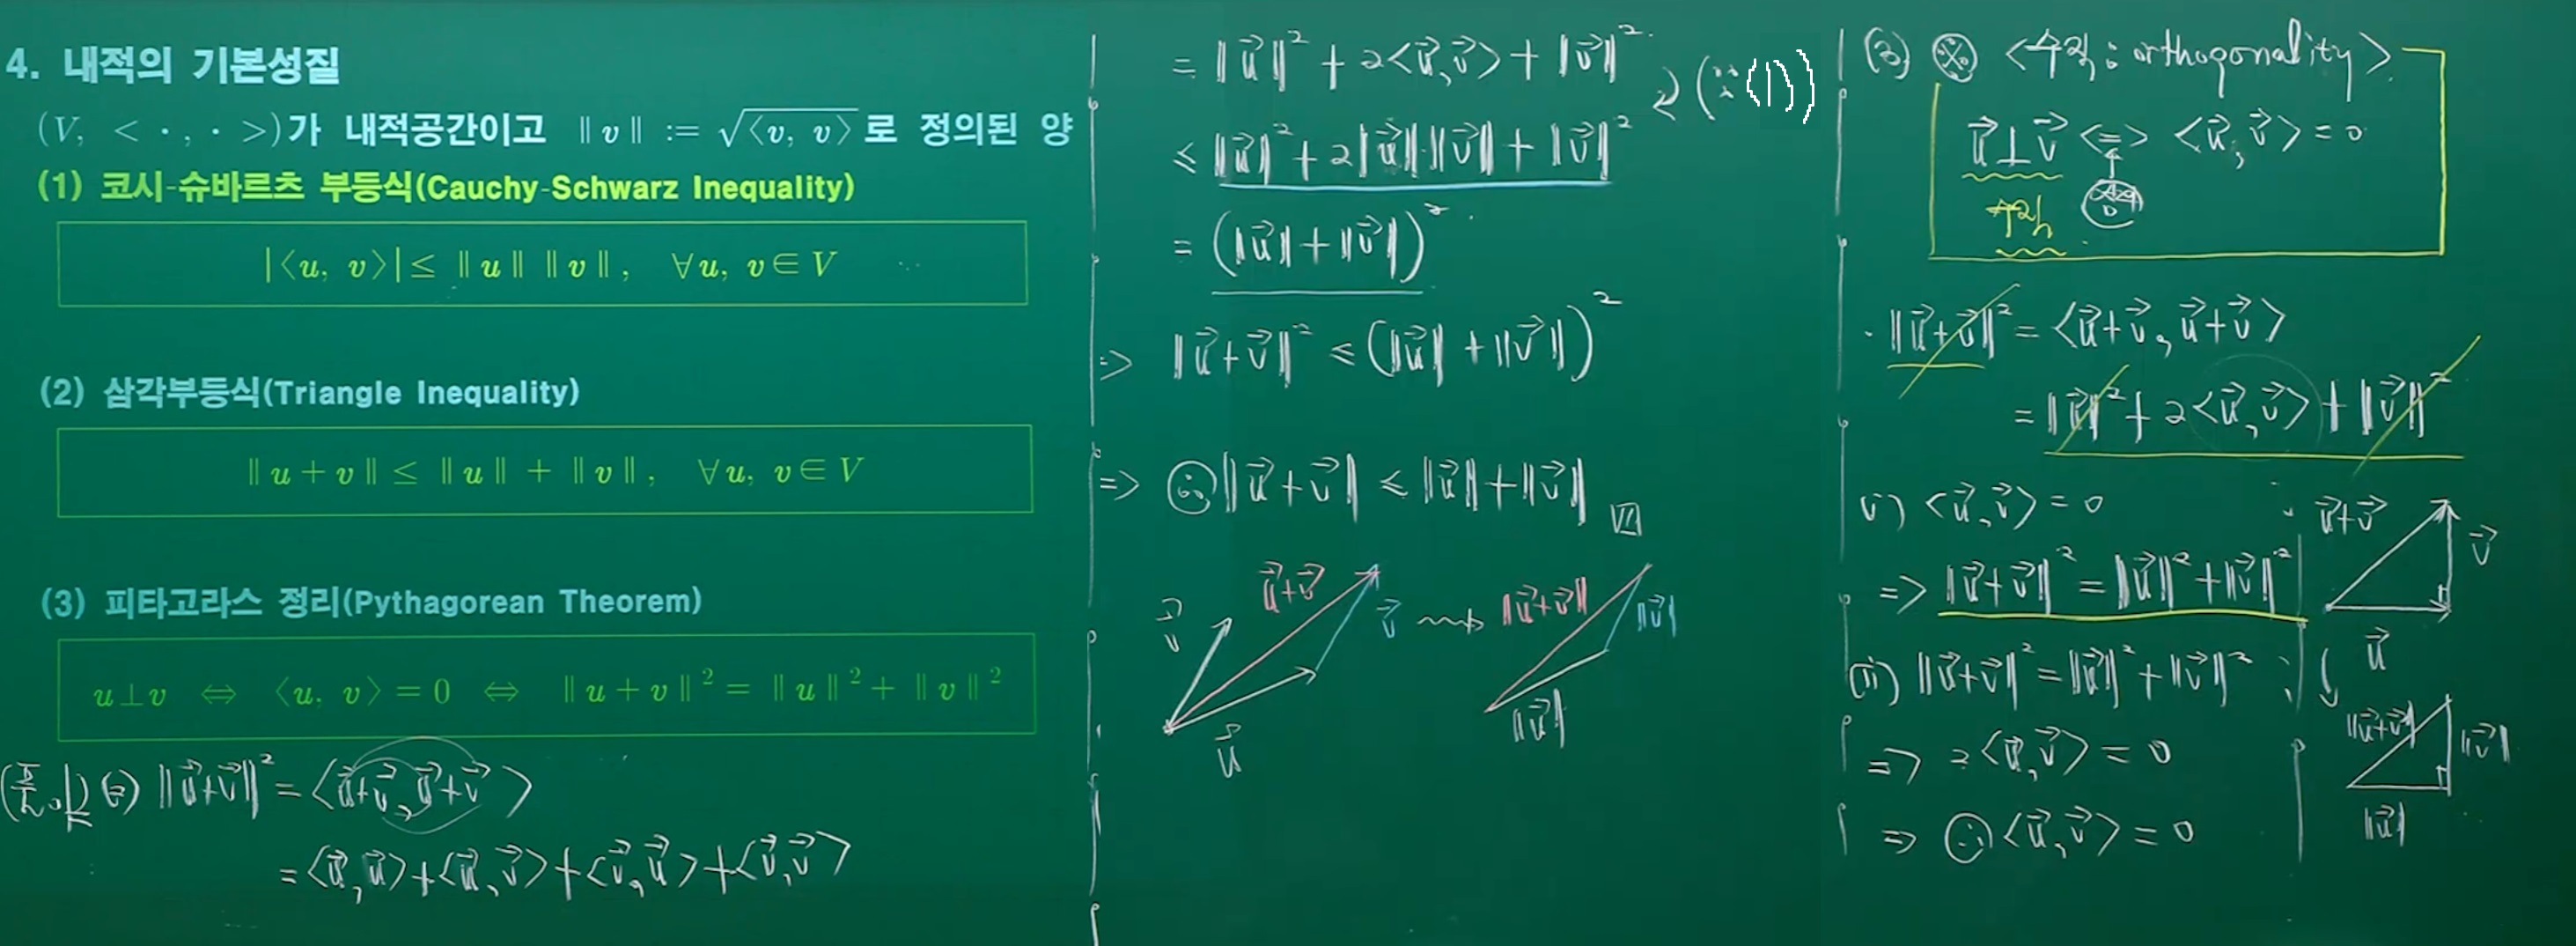 4. 내적의 기본성질
(V, < · , · >)가 내적공간이고 ‖v‖ := √⟨v, v⟩로 정의된 양
(1) 코시-슈바르츠 부등식(Cauchy-Schwarz Inequality)
|⟨u, v⟩| ≤ ‖u‖ ‖v‖, ∀u, v∈V
(2) 삼각부등식(Triangle Inequality)
‖u+v‖ ≤ ‖u‖ + ‖v‖, ∀u, v∈V
(3) 피타고라스 정리(Pythagorean Theorem)
u⊥v ⇔ ⟨u, v⟩=0 ⇔ ‖u+v‖² = ‖u‖² + ‖v‖²
(풀이) (2) ‖u⃗+v⃗‖² = <u⃗+v⃗, u⃗+v⃗>
= <u⃗, u⃗>+<u⃗, v⃗>+<v⃗, u⃗>+<v⃗, v⃗>
= ‖u⃗‖² + 2<u⃗, v⃗> + ‖v⃗‖²
≤ ‖u⃗‖² + 2‖u⃗‖·‖v⃗‖ + ‖v⃗‖² (∵(1))
= (‖u⃗‖+‖v⃗‖)²
=> ‖u⃗+v⃗‖² ≤ (‖u⃗‖+‖v⃗‖)²
=> ∴ ‖u⃗+v⃗‖ ≤ ‖u⃗‖+‖v⃗‖
v⃗ u⃗+v⃗ v⃗ ‖u⃗+v⃗‖ ‖v⃗‖
u⃗ ‖u⃗‖
(3) ※ <수직 : orthogonality>
u⃗⊥v⃗ <=> <u⃗, v⃗> = 0
수직
· ‖u⃗+v⃗‖² = <u⃗+v⃗, u⃗+v⃗>
= ‖u⃗‖² + 2<u⃗, v⃗> + ‖v⃗‖²
i) <u⃗, v⃗> = 0
=> ‖u⃗+v⃗‖² = ‖u⃗‖²+‖v⃗‖²
u⃗+v⃗ v⃗
u⃗
ii) ‖u⃗+v⃗‖² = ‖u⃗‖²+‖v⃗‖²
=> 2<u⃗, v⃗> = 0
=> ∴ <u⃗, v⃗> = 0
‖u⃗+v⃗‖ ‖v⃗‖
‖u⃗‖